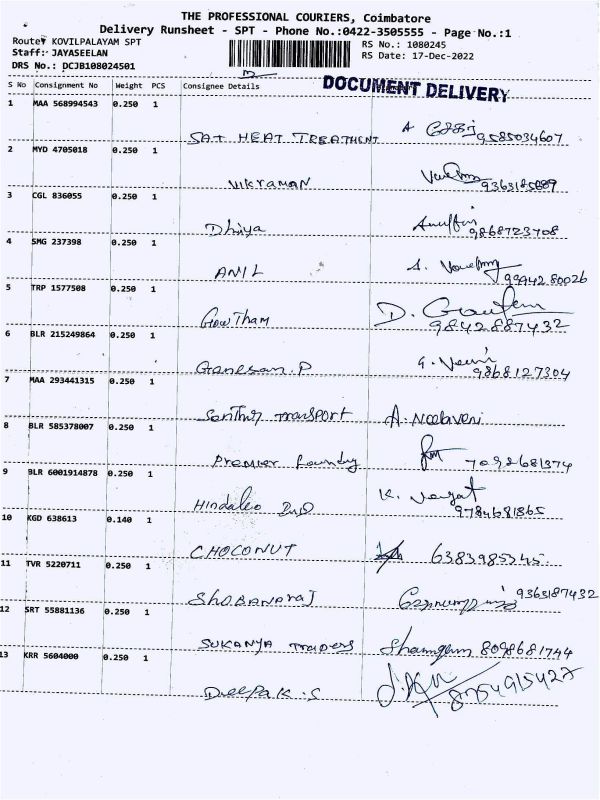 THE PROFESSIONAL COURIERS, Coimbatore
Delivery Runsheet - SPT - Phone No.:0422-3505555 - Page No.:1
Route: KOVILPALAYAM SPT
RS No.: 1080245
Staff: JAYASEELAN
RS Date: 17-Dec-2022
DRS No.: DCJB108024501
DOCUMENT DELIVERY
S No Consignment No Weight PCS Consignee Details
1 MAA 568994543 0.250 1
SAT HEAT TREATMENT 9585034607
2 MYD 4705018 0.250 1
VIKRAMAN
3 CGL 836055 0.250 1
Dhiya 9868723708
4 SMG 237398 0.250 1
ANIL 9994280026
5 TRP 1577508 0.250 1
GowTham D. Gautam
9842887432
6 BLR 215249864 0.250 1
Ganesan.P 9868127304
7 MAA 293441315 0.250 1
Transport A. Neelaveni
8 BLR 585378007 0.250 1
Premier Foundry 7092681374
9 BLR 6001914878 0.250 1
Hindalco K.
9784681865
10 KGD 638613 0.140 1
CHOCONUT 6383985345
11 TVR 5220711 0.250 1
Shobanaraj 9363187432
12 SRT 55881136 0.250 1
SUKANYA Traders 8098681744
13 KRR 5604000 0.250 1
Deepak.S 8754915427